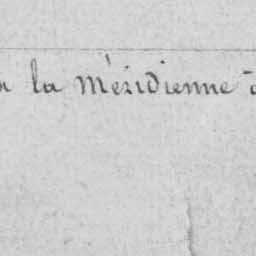 la Méridienne